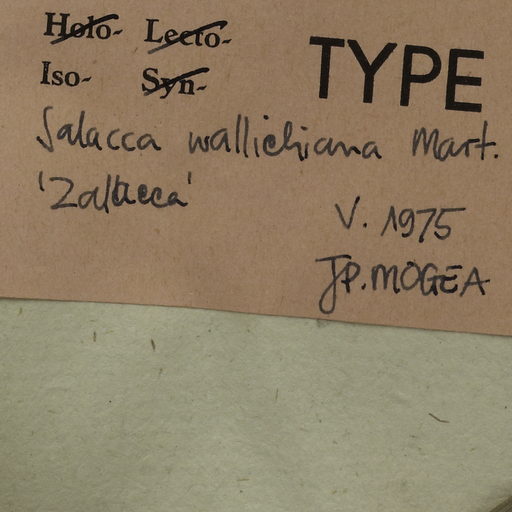 Holo- Lecto-
Iso- Syn- TYPE
Salacca wallichiana Mart.
'Zalacca'
V. 1975
JP. MOGEA